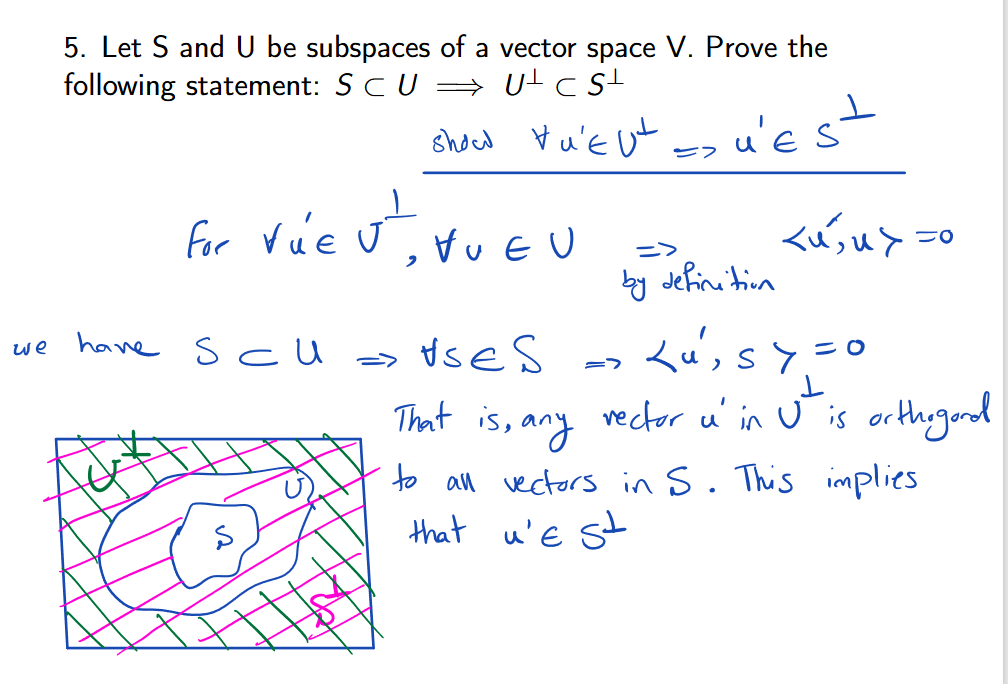 5. Let S and U be subspaces of a vector space V. Prove the
following statement: S ⊂ U ⟹ U⊥ ⊂ S⊥
show ∀u'∈U⊥ => u'∈ S⊥
For ∀u'∈ U⊥, ∀u ∈ U => <u',u> =0
by definition
we have S⊂U => ∀s∈S => <u',s>=0
That is, any vector u' in U⊥ is orthogonal
to all vectors in S. This implies
that u'∈ S⊥
U⊥
U
S
S⊥